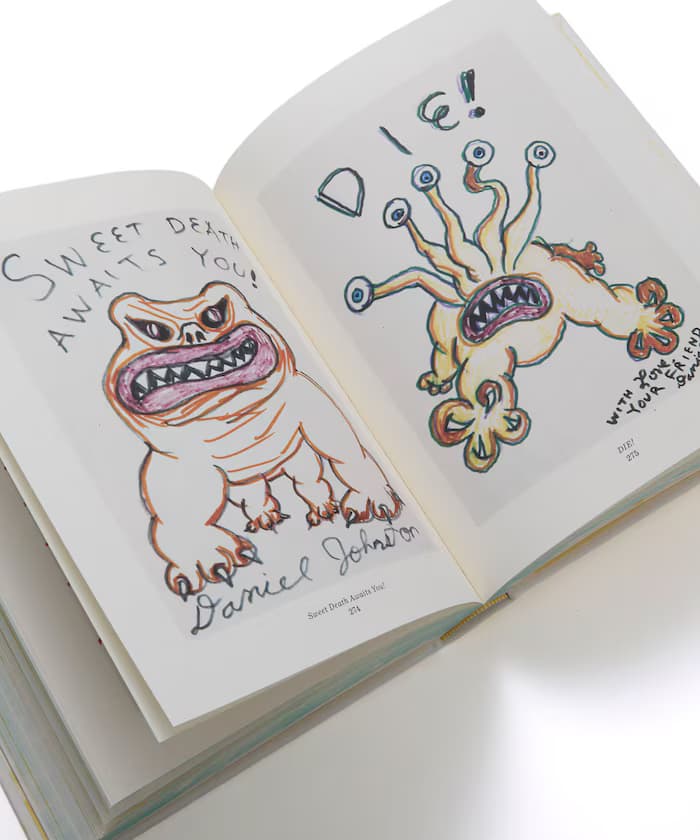 SWEET DEATH
AWAITS YOU!
Daniel Johnston
Sweet Death Awaits You!
274
DIE!
WITH Love
YOUR FRIEND
Daniel
DIE!
275